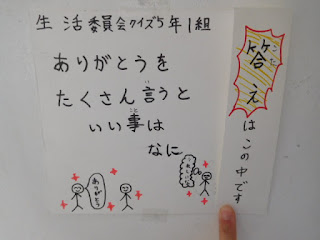 生活委員会クイズ5年1組
ありがとうを
たくさん言うと
いい事は
なに
ありがとう
答えはこの中です